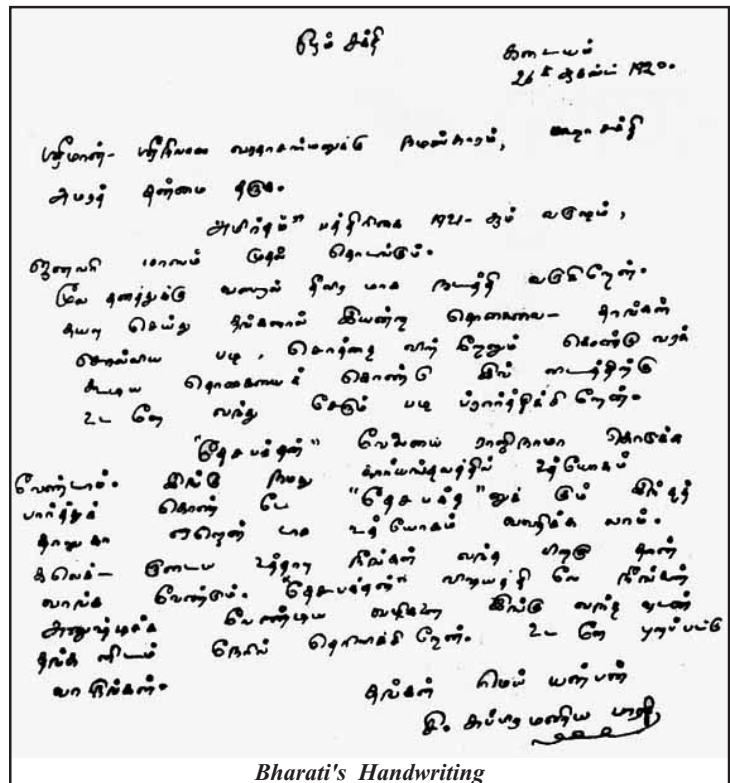 ஓம் சக்தி
கடையம்
26 ஆகஸ்ட் 1920.
ஸ்ரீமான்- ஸ்ரீநிவாஸ வரதாசார்யனுக்கு நமஸ்காரம், மஹா சக்தி
அமரத் தன்மை தருக.
அமிர்தம்" பத்திரிகை 1921-ஆம் வருஷம்,
ஜனவரி மாஸம் முதல் தொடங்கும்.
மூல தனத்துக்கு வஸூல் தீவிர மாக நடத்தி வருகிறேன்.
தயவு செய்து தங்களால் இயன்ற தொகையை- தாங்கள்
சொல்லிய படி, சொத்தை விற் றேனும் கொண்டு வரக்
கூடிய தொகையைக் கொண்டு இவ் விடத்திற்கு
உட னே வந்து சேரும் படி ப்ரார்த்திக்கி றேன்.
"தேச பக்தன்" வேலையை ராஜிநாமா கொடுக்க
வேண்டாம். இங்கு நமது கார்யஸ்தலத்தில் உத்யோகம்
பார்த்துக் கொண் டே "தேச பக்த "னுக் கும் இந்தத்
தாலுகா ஏஜெண் டாக உத் யோகம் வஹிக்க லாம்.
வந்த பிறகு தான்
வாங்க வேண்டும். "தேசபக்தன்" விஷயத்தி லே நீங்கள்
அனுஷ்டிக்க வேண்டிய வழிகளை இங்கு வந்த வுடன்
தங்க ளிடம் நேரில் தெரிவிக்கி றேன். உட னே புறப்பட்டு
வா ருங்கள்.
தங்கள் மெய் யன்பன்
சி. சுப்பிர மணிய பாரதி
Bharati's Handwriting